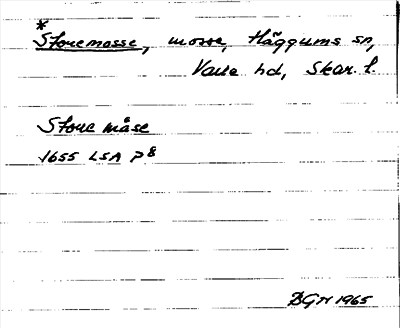 *
Storemosse, mosse, Häggums sn,
Valle hd, Skar. l.
Store måse
1655 LSA P8
BGN 1965